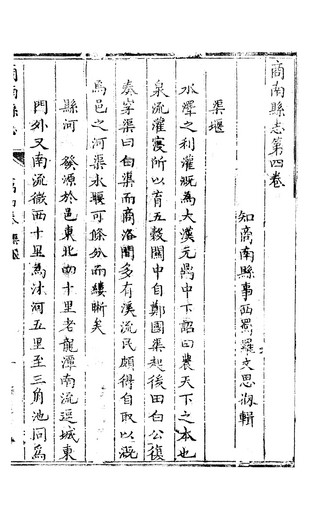 商南縣志第四卷
知商南縣事西蜀羅文思輯
渠堰
水澤之利灌溉為大漢元鼎中下詔曰農天下之本也
泉流灌寖所以育五穀關中自鄭國渠起後田白公復
奏穿渠曰白渠而商洛間多有溪流民頗得自取以溉
焉邑之河渠水堰可條分而縷晰矣
縣河 發源於邑東北十里老龍潭南流逕城東
門外又南流微西十里為沐河五里至三角池同為